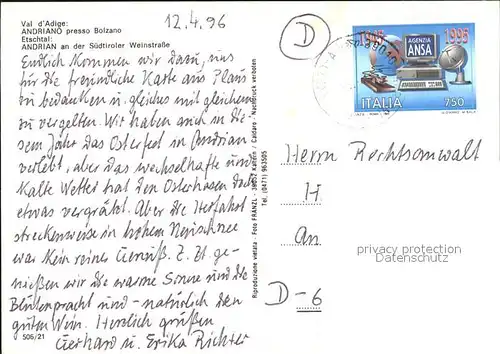 Val d'Adige:
ANDRIANO presso Bolzano
Etschtal:
ANDRIAN an der Südtiroler Weinstraße
12.4.96
Endlich kommen wir dazu, uns
für die freundliche Karte aus Plaus
zu bedanken u. gleiches mit gleichem
zu vergelten. Wir haben auch in die-
sem Jahr das Osterfest in Andrian
verlebt, aber das wechselhafte und
kalte Wetter hat den Osterhasen doch
etwas vergrätzt. Aber die Herfahrt
streckenweise in hohem Neuschnee
war kein reiner Genuß. Z. Zt. ge-
nießen wir die warme Sonne und die
Blütenpracht und - natürlich den
guten Wein. Herzlich grüßen
Gerhard u. Erika Richter
505/21
Riproduzione vietata - Foto FRANZL - 39052 Kaltern / Caldaro - Nachdruck verboten
Tel. (0471) 963505
D
1945 1995
AGENZIA
ANSA
ITALIA 750
Herrn Rechtsanwalt
H
An
privacy protection
Datenschutz
D-6